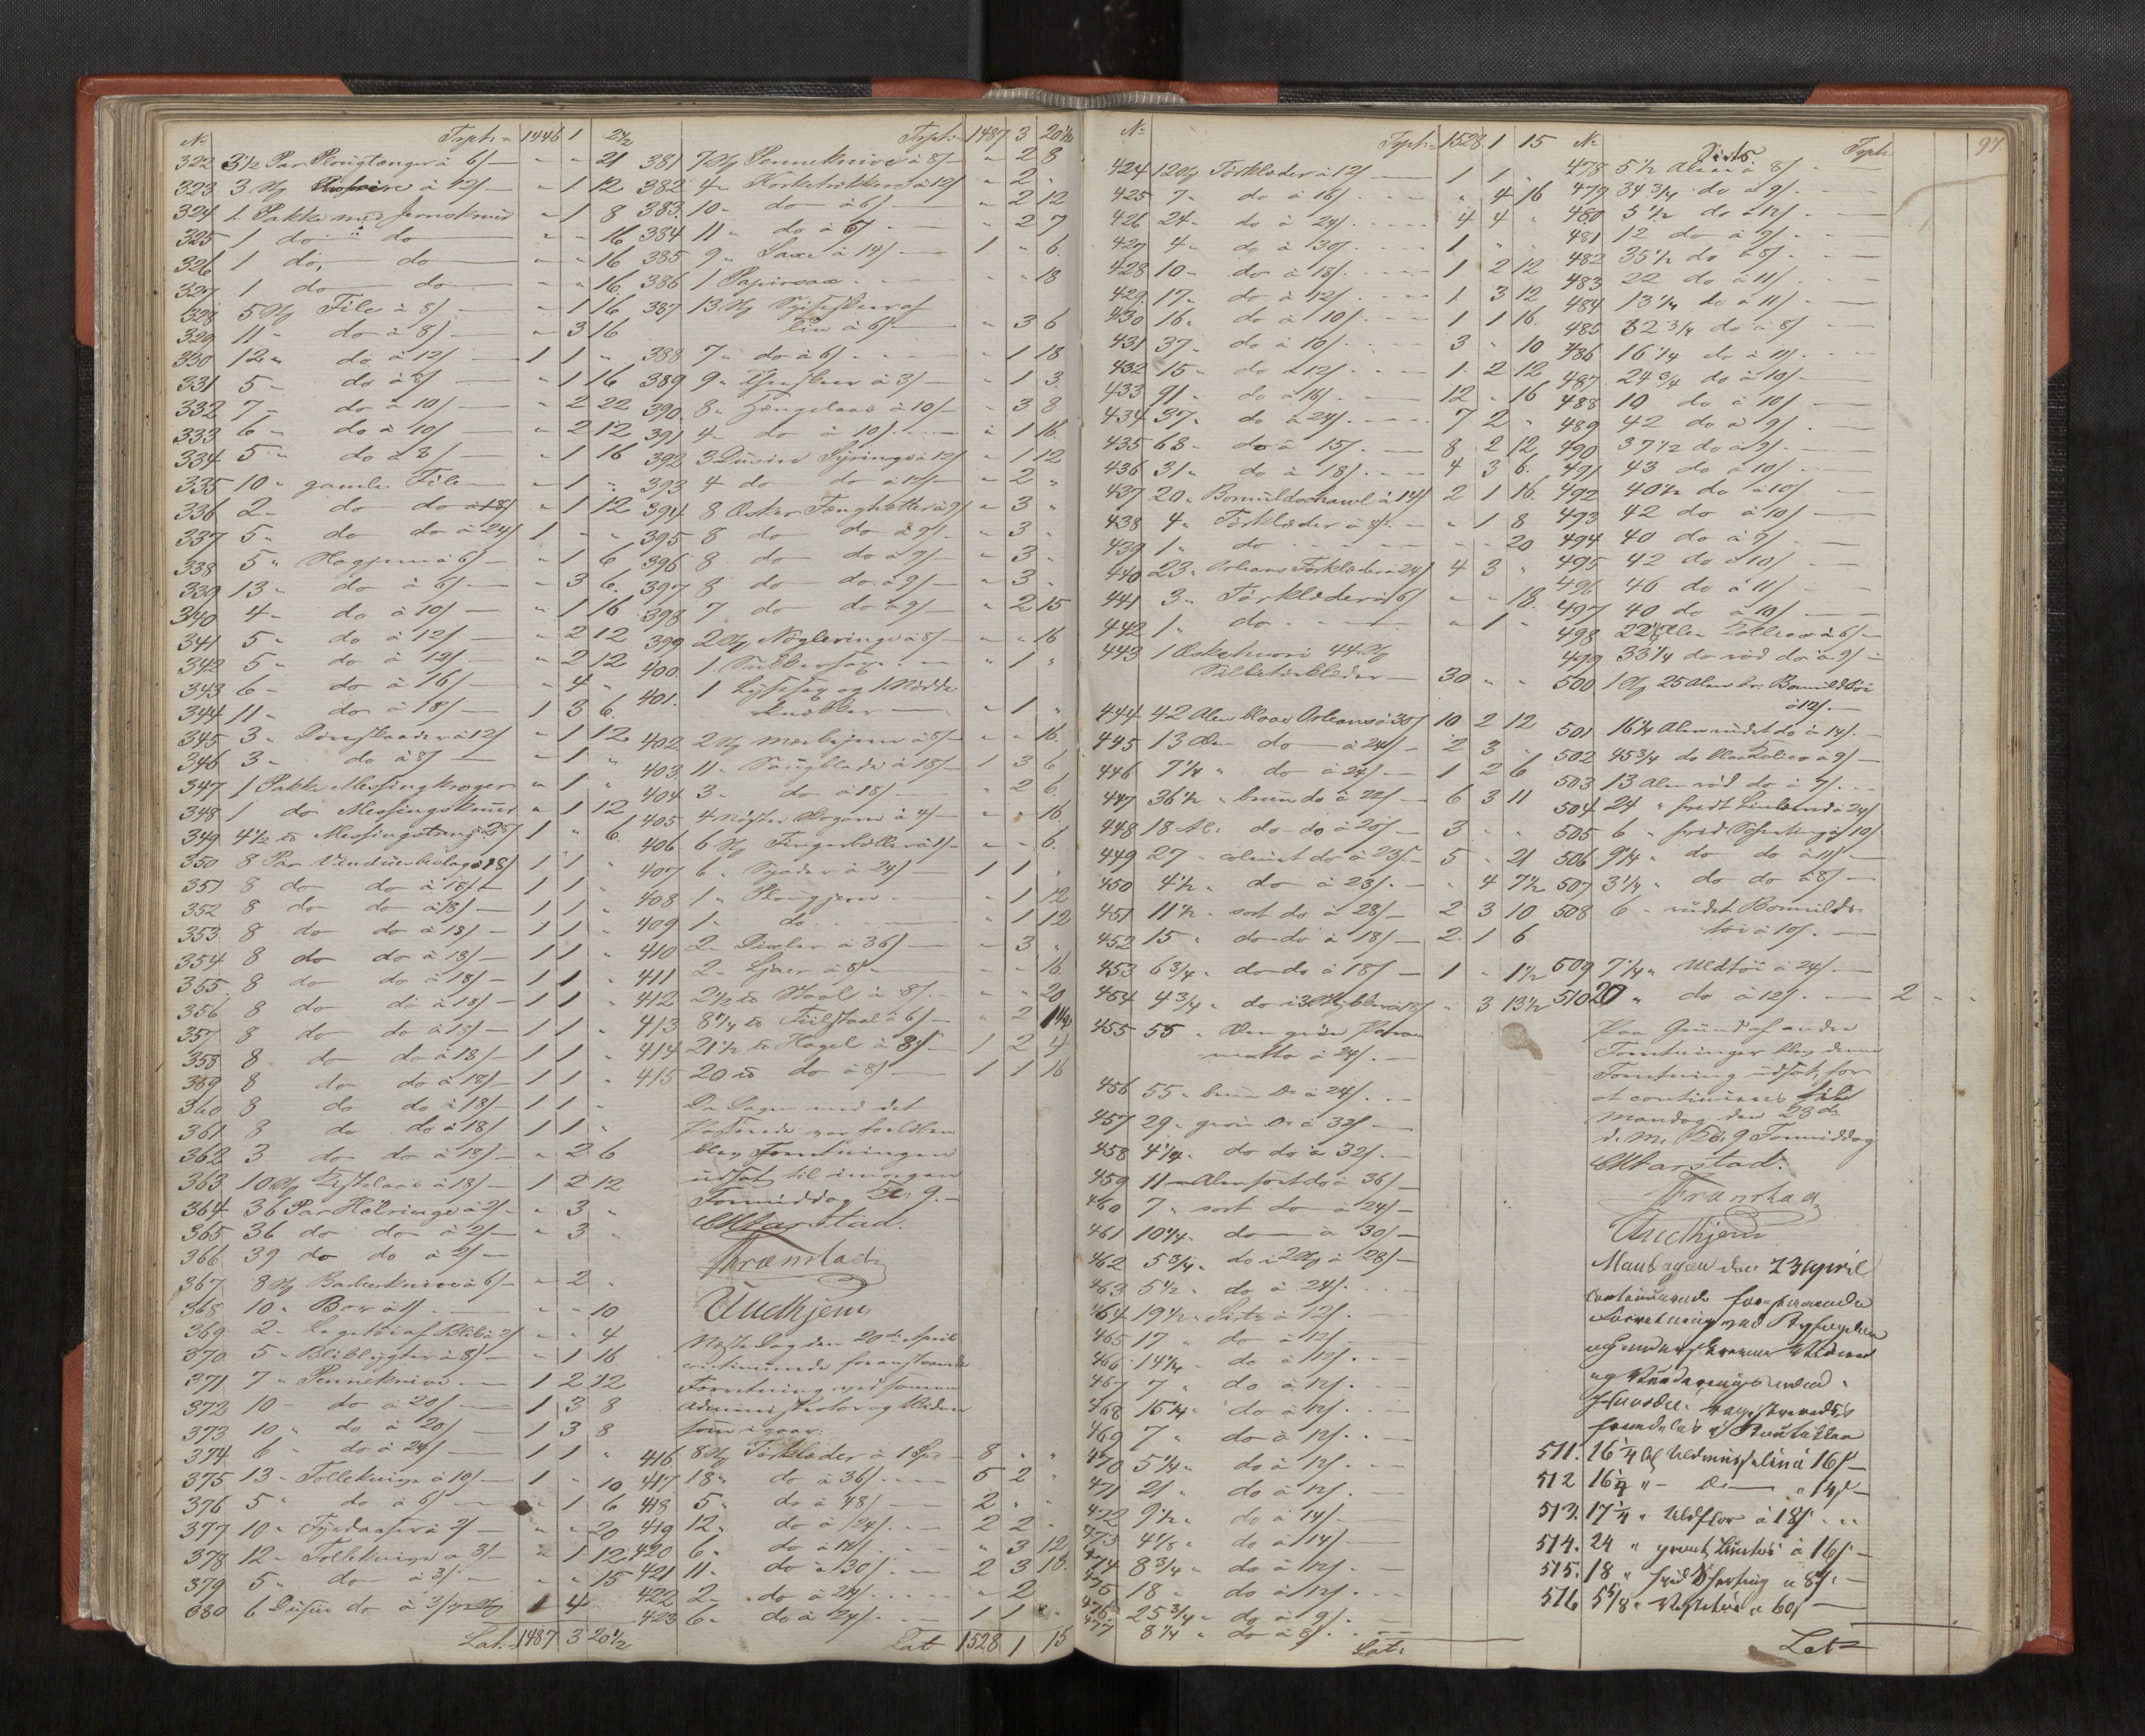 No Tsph: 1446 1 2½
322 3½ Par Plougtænger à 6/ — " " 21
323 3 St/ à 12/ — " 1 12
324 1 Pakke med Jernskruer " 1 8
325 1 do " do — " " 16
326 1 do, do — " " 16
327 1 do do — " " 16
328 5 St/ File à 8/ — " 1 16
329 11 " do à 8/ — " 3 16
330 12 " do à 12/ — 1 1 "
331 5 " do à 8/ — " 1 16
332 7 " do à 10/ — " 2 22
333 6 " do à 10/ — " 2 12
334 5 " do à 8/ — " 1 16
335 10 " gamle File — " 1 "
336 2 " do do à 18/ " 1 12
337 5 " do do à 24/ 1 " "
338 5 " Høgjern à 6/ — " 1 6
339 13 " do à 6/ — " 3 6
340 4 " do à 10/ — " 1 16
341 5 " do à 12/ — " 2 12
342 5 " do à 12/ — " 2 12
343 6 " do à 16/ — " 4 "
344 11 " do à 18/ — 1 3 6
345 3 " à 12/ " 1 12
346 3 " do à 8/ — " 1 "
347 1 Pakke Messingkroger " 1 "
348 1 do Messingskruer " 1 12
349 4½ Messingstang à 28/ 1 " 6
350 8 Par Vinduesbeslag à 18/ 1 1 "
351 8 do do à 18/ — 1 1 "
352 8 do do à 18/ — 1 1 "
353 8 do do à 18/ — 1 1 "
354 8 do do à 18/ — 1 1 "
355 8 do do à 18/ — 1 1 "
356 8 do do à 18/ — 1 1 "
357 8 do do à 18/ — 1 1 "
358 8 do do à 18/ — 1 1 "
359 8 do do à 18/ — 1 1 "
360 8 do do à 18/ — 1 1 "
361 8 do do à 18/ 1 1 "
362 3 do do à 18/ — " 2 6
363 10 St/ à 18/ — 1 2 12
364 36 Par à 2/ " 3 "
365 36 do do à 2/ — " 3 "
366 39 do do à 2/ —
367 8 St/ Barberknive à 6/ — " 2 "
368 10 " à 1/ — " " 10
369 2 " à 2/ " " 4
370 5 " à 8/ — " 1 16
371 7 " Penneknive — 1 2 12
372 10 " do à 20/ — 1 3 8
373 10 " do à 20/ — 1 3 8
374 6 " do à 24/ — 1 1 "
375 13 " Follekniv à 10/ — 1 " 10
376 5 " do à 6/ — " 1 6
377 10 " à 2/ — " " 20
378 12 " Follekniv à 3/ — " 1 12
379 5 " do à 3/ — " " 15
380 6 Dusin do à 3/ 1 4
Lat. 1487 3 20½
Tsph: 1487 3 20½
381 7 St/ Penneknive à 8/ — " 2 8
382 4 " Korketrekkere à 12/ " 2 "
383. 10 " do à 6/ — " 2 12
384 11 " do à 6/ — " 2 7
385 9 " Saxe à 14/ — 1 " 6
386 1 Papirsax — " " 18
387 13 St/
à 6/ — " 3 6
388 7 " do à 6/ — " 1 18
389 9 " à 3/ — " 1 3
390. 8 " Hængelaas à 10/ — " 3 8
391 4 " do à 10/ — " 1 16
392 3 Dusin Syringe à 12/ " 1 12
393 4 do do à 12/ — " 2 "
394 8 Æsker Fænghetter à 9/ " 3 "
395 8 do do à 9/ — " 3 "
396 8 do do à 9/ — " 3 "
397 8 do do à 9/ — " 3 "
398 7 do do à 9/ — " 2 15
399 2 St/ Nögleringe à 8/ — " " 16
400. 1 — " 1 "
401. 1 og 1
— " 1 "
402 2 St/ à 8/ — " " 16
403. 11 " Saugblade à 15/ — 1 3 6
404 3 " do à 18/ — " 2 6
405 4 à 4/ — " " 16
406 6 St/ Fingerböller à 1/ — " " 6
407 6 " à 24/ — 1 1 "
408 1 " Plougjern — " 1 12
409 1 " do — " 1 12
410 2 " à 36/ — " 3 "
411 2 " Ljaer à 8/ — " " 16
412 2½ Staal à 8/ — " " 20
413 8¼ Fiilstaal à 6/ — " 2 1½
414 21½ Hagel à 8/ — 1 2 4
415 20 do à 8/ — 1 1 16
Da Dagen med det
var forløben
blev Forretningen
udsat til imorgen
Formiddag Kl. 9. —
CMarstad.
Trænstad
Undhjem
Næste Dag den 20de April
continuerede foranstaaende
Forretning ved samme
Administrator og Vidner
som igaar:
416 8 St/ Törklæder à 1 Sp — 8 " "
417. 18 " do à 36/ — 5 2 "
418 5 " do à 48/ — 2 " "
419 12 " do à 24/ — 2 2 "
420 6 " do à 14/ — " 3 12
421 11 " do à 30/ — 2 3 18
422 2 " do à 24/ — " 2 "
423 6 " do à 24/ — 1 1 "
Lat 1528 1 15
No Tsph: 1528 1 15
424 12 St/ Törklæder à 12/ — 1 1 "
425 7 " do à 16/ — " 4 16
426 24 " do à 24/ — 4 4 "
427 4 " do à 30/ — 1 " "
428 10 " do à 18/ — 1 2 12
429 17 " do à 12/ — 1 3 12
430 16 " do à 10/ — 1 1 16
431 37 " do à 10/ — 3 " 10
432 15 " do à 12/ — 1 2 12
433 91 " do à 16/ — 12 " 16
434 37 " do à 24/ — 7 2 "
435 68 " do à 15/ — 8 2 12
436 31 " do à 18/ — 4 3 6
437 20 " Bomuldsshawl à 14/ 2 1 16
438 4 " Törklæder à 8/ — " 1 8
439 1 " do — " " 20
440 23 " Orleans Törklæder à 24/ 4 3 "
441 3 " Törklæder à 6/ " " 18
442 1 " do — " 1 "
443 1 Æske hvori 44 St/
Silketörklæder — 30 " "
444 42 Alen blaae Orleans à 30/ 10 2 12
445 13 Alen do — à 24/ — 2 3 "
446 7¼ " do à 24/ — 1 2 6
447 36½ " bruun do à 22/ — 6 3 11
448 18 Al: do do à 20/ — 3 " "
449 27 " coleurt do à 23/ — 5 " 21
450 4½ " do à 23/ — " 4 7½
451 11½ " sort do à 28/ — 2 3 10
452 15 " do do à 18/ — 2 1 6
453 6¾ " do do à 18/ — 1 " 1½
454 4¾ " do i 3 à 18/ " 3 13½
455 55 " Alen grön Para
matta à 24/ —
456 55 " bruun Do à 24/ —
457 29 " grön Do à 32/ —
458 4¼ " do do à 32/ —
459 11 — Alen sort do à 36/ —
460 7 " sort do à 24/ —
461 10¼ " do — à 30/ —
462 5¾ " do i 2 St/ à 28/ —
463 5½ " do à 24/ —
464 19½ " Sirts à 12/ —
465 17 " do à 12/ —
466 14¼ " do à 12/ —
467 7 " do à 12/ —
468 15¼ " do à 12/ —
469 7 " do à 12/ —
470 5¼ " do à 12/ —
471 21 " do à 12/ —
472 9½ " do à 14/ —
473 4⅛ " do à 14/ —
474 8¾ " do à 12/ —
475 18 " do à 12/ —
476 25¾ " do à 9/ —
477 8¼ " do à 8/ —
Lat:
No Tsph 94
Sirts.
478 5½ Alen à 8/ —
479 34¾ do à 9/ —
480 5½ do à 12/ —
481 12 do à 9/ —
482 35½ do à 8/ —
483 22 do à 11/ —
484 13¼ do à 11/ —
485 32¾ do à 8/ —
486 16¼ do à 11/ —
487 24¾ do à 10/ —
488 10 do à 10/ —
489 42 do à 9/ —
490 37½ do à 9/ —
491 43 do à 10/ —
492 40½ do à 10/ —
493 42 do à 10/ —
494 40 do à 9/ —
495 42 do à 10/ —
496 46 do à 11/ —
497 40 do à 10/ —
498 22½ Alen à 6/ —
499 33¼ do röd do à 9/ —
500 1 St/ 25 Alen br: Bomuldstöi
à 12/ —
501 16¼ Alen rudet do à 14/ —
502 45¾ do blaa Kalico à 9/ —
503 13 Alen röd do à 9/ —
504 24 " hvidt Linlærred à 24/
505 6 " hvid Schirting à 10/
506 9¼ " do do à 11/ —
507 3¼ " do do à 8/ —
508 6 " rudet Bomulds-
töi à 10/ —
509 7¼ " Uldtöi à 24/ —
510 20 " do à 12/ — 2 " "
Paa Grund af andre
Forretninger blev denne
Forretning udsat, for
at continueres til
Mandag den 23de
d. M. Kl. 9 Formiddag
CMarstad.
Trænstad
Undhjem
Mandagen den 23 April
continuerede foranstaaende
Forretning ved
og Vidner
og Vurderingsmænd.

511. 16¼ Al Uldmusselin à 16/ —
512 16¼ " — Do — à 14/ —
513. 17¼ " Uldflor à 18/ —
514. 24 " grönt à 16/ —
515. 18 " hvid Schirting à 8/ —
516 5⅛ " Vestetöi à 60/ —
Lat